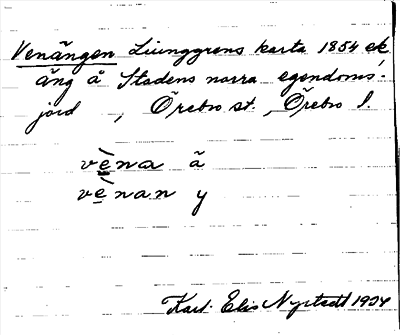 Venängen Ljunggrens karta 1854 ek.
äng å Stadens norra egendoms-
jord , Örebro st., Örebro l.
vè̱na ã
vè̱nan y
Karl-Elis Nystedt 1934